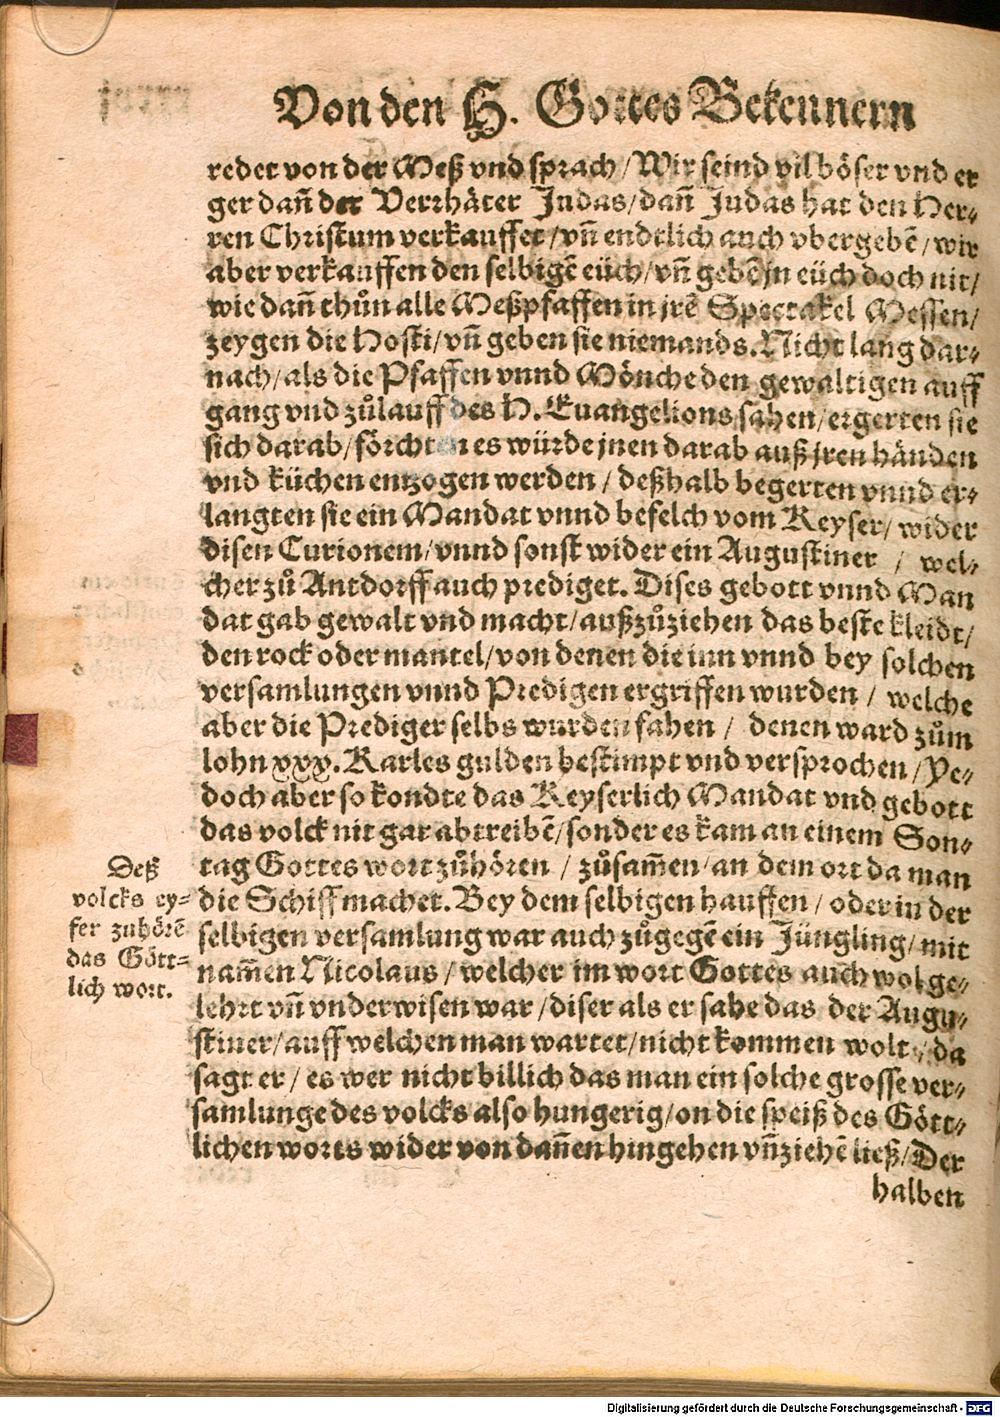 Von den H. Gottes Bekennern
redet von der Meß vnd sprach/ Wir seind vil böser vnd er
ger dañ der Verrhäter Judas/ dañ Judas hat den Her-
ren Christum verkauffet/ vñ endtlich auch vbergebẽ/ wir
aber verkauffen den selbigẽ eüch/ vñ gebẽ jn eüch doch nit/
wie dann thůn alle Meßpfaffen in jrẽ Spectakel Messen/
zeygen die Hosti/ vñ geben sie niemands. Nicht lang dar-
nach/ als die Pfaffen vnnd Mönche den gewaltigen auff
gang vnd zůlauff des H. Euangelions sahen/ ergerten sie
sich darab/ förchten es würde jnen darab auß jren händen
vnd küchen entzogen werden/ deßhalb begerten vnnd er-
langten sie ein Mandat vnnd befelch vom Keyser/ wider
disen Curionem/ vnnd sonst wider ein Augustiner/ wel-
cher zů Antdorff auch prediget. Dises gebott vnnd Man
dat gab gewalt vnd macht/ außzůziehen das beste kleidt/
den rock oder mantel/ von denen die inn vnnd bey solchen
versamlungen vnnd Predigen ergriffen wurden/ welche
aber die Prediger selbs wurden fahen/ denen ward zům
lohn xxx. Karles gulden bestimpt vnd versprochen/ Ye-
doch aber so kondte das Keyserlich Mandat vnd gebott
das volck nit gar abtreibẽ/ sonder es kam an einem Son-
tag Gottes wort zůhören/ zůsam̃en/ an dem ort da man
die Schiff machet. Bey dem selbigen hauffen/ oder in der
selbigen versamlung war auch zůgegẽ ein Jüngling/ mit
nam̃en Nicolaus/ welcher im wort Gottes auch wol ge-
lehrt vñ vnderwisen war/ diser als er sahe das der Augu-
stiner/ auff welchen man wartet/ nicht kommen wolt/ da
sagt er/ es wer nicht billich das man ein solche grosse ver-
samlunge des volcks also hungerig/ on die speiß des Gött-
lichen worts wider von dañen hingehen vñ ziehẽ ließ/ Der
halben
Deß
volcks ey-
fer zuhörẽ
das Gött-
lich wort.
Digitalisierung gefördert durch die Deutsche Forschungsgemeinschaft - DFG